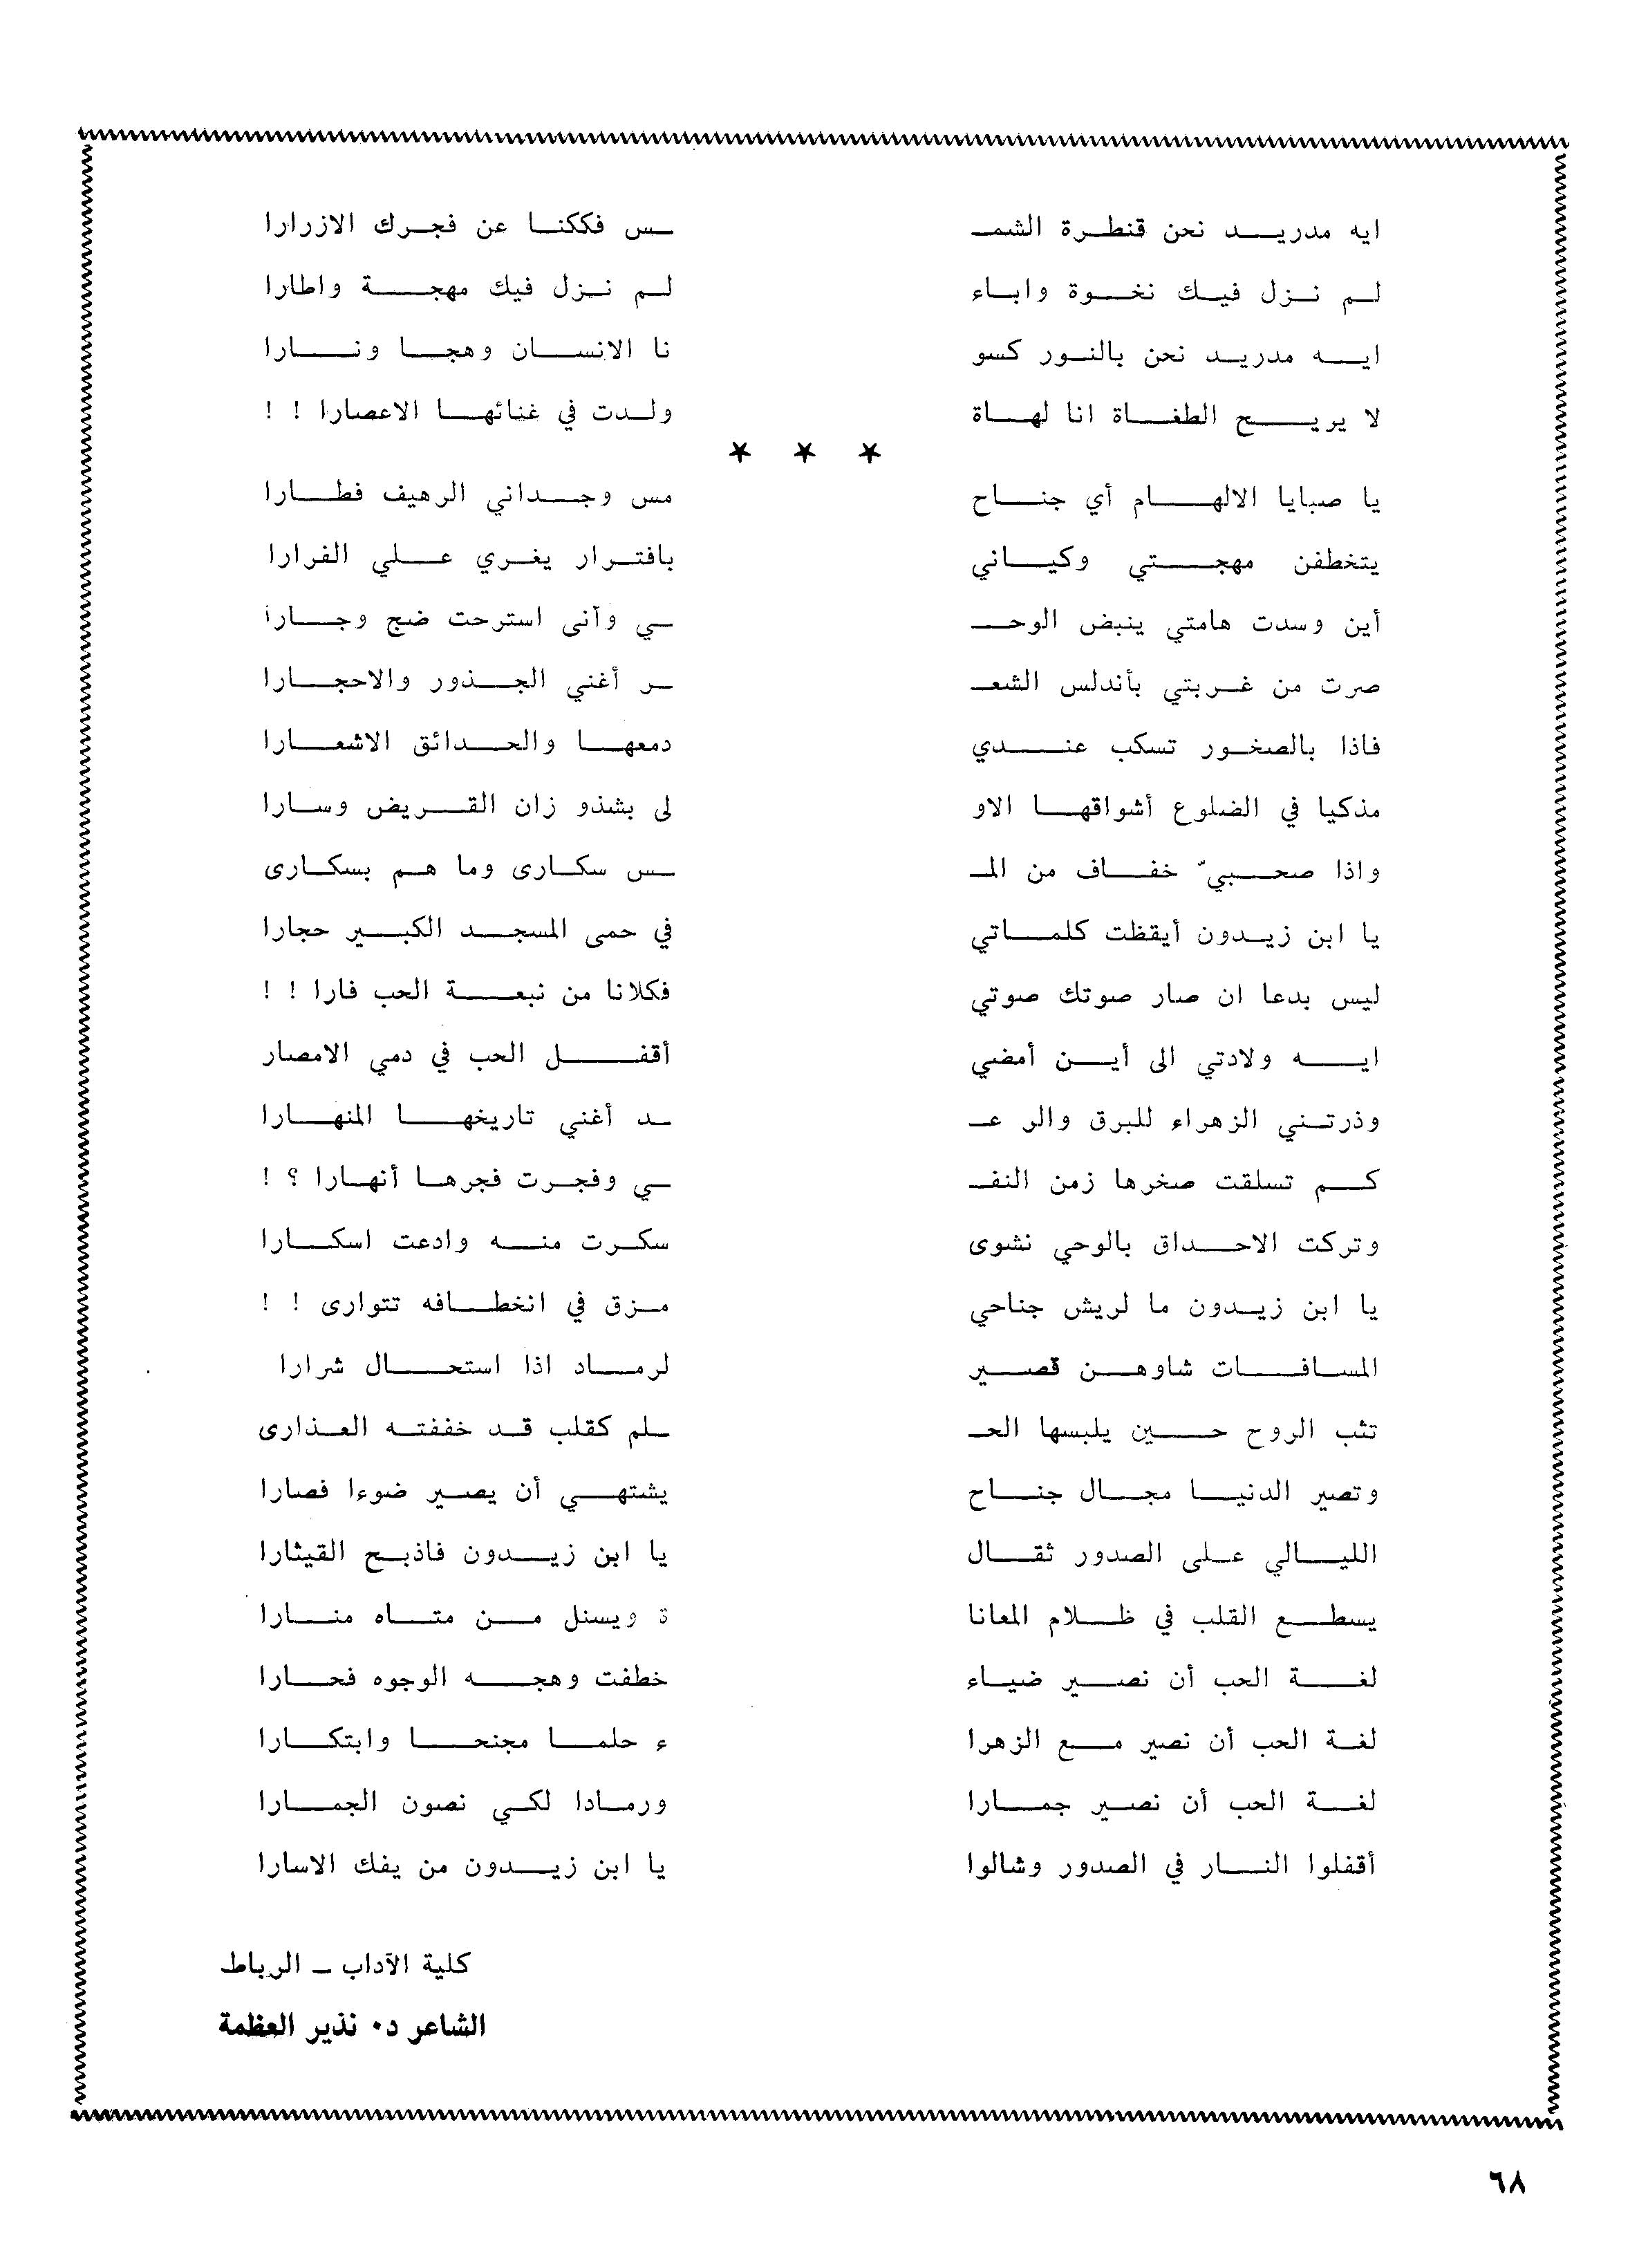 ايه مدريد نحن قنطرة الشمـ ـس فككنا عن فجرك الازرارا
لم نزل فيك نخوة واباء لم نزل فيك مهجة واطارا
ايه مدريد نحن بالنور كسو نا الانسان وهجا ونارا
لا يريح الطغاة انا لهاة ولدت في غنائها الاعصارا ! !
* * *
يا صبايا الالهام أي جناح مس وجداني الرهيف فطارا
يتخطفن مهجتي وكياني بافترار يغري علي الفرارا
أين وسدت هامتي ينبض الوحـ ـي وآنى استرحت ضج وجارا
صرت من غربتي بأندلس الشعـ ـر أغني الجذور والاحجارا
فاذا بالصخور تسكب عندي دمعها والحدائق الاشعارا
مذكيا في الضلوع أشواقها الاو لى بشذو زان القريض وسارا
واذا صحبيّ خفاف من المـ ـس سكارى وما هم بسكارى
يا ابن زيدون أيقظت كلماتي في حمى المسجد الكبير حجارا
ليس بدعا ان صار صوتك صوتي فكلانا من نبعة الحب فارا ! !
ايه ولادتي الى أين أمضي أقفل الحب في دمي الامصار
وذرتني الزهراء للبرق والر عـ ـد أغني تاريخها المنهارا
كم تسلقت صخرها زمن النفـ ـي وفجرت فجرها أنهارا ؟ !
وتركت الاحداق بالوحي نشوى سكرت منه وادعت اسكارا
يا ابن زيدون ما لريش جناحي مزق في انخطافه تتوارى ! !
المسافات شاوهن قصير لرماد اذا استحال شرارا
تثب الروح حين يلبسها الحـ ـلم كقلب قد خففته العذارى
وتصير الدنيا مجال جناح يشتهي أن يصير ضوءا فصارا
الليالي على الصدور ثقال يا ابن زيدون فاذبح القيثارا
يسطع القلب في ظلام المعانا ة ويسنل من متاه منارا
لغة الحب أن نصير ضياء خطفت وهجه الوجوه فحارا
لغة الحب أن نصير مع الزهرا ء حلما مجنحا وابتكارا
لغة الحب أن نصير جمارا ورمادا لكي نصون الجمارا
أقفلوا النار في الصدور وشالوا يا ابن زيدون من يفك الاسارا
كلية الآداب – الرباط
الشاعر د. نذير العظمة
٦٨